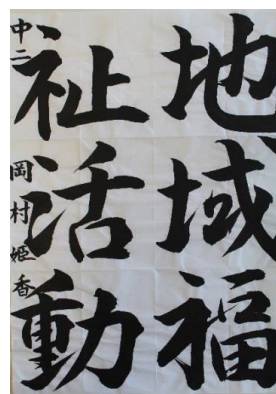 地域福
祉活動
中二 岡村姫香